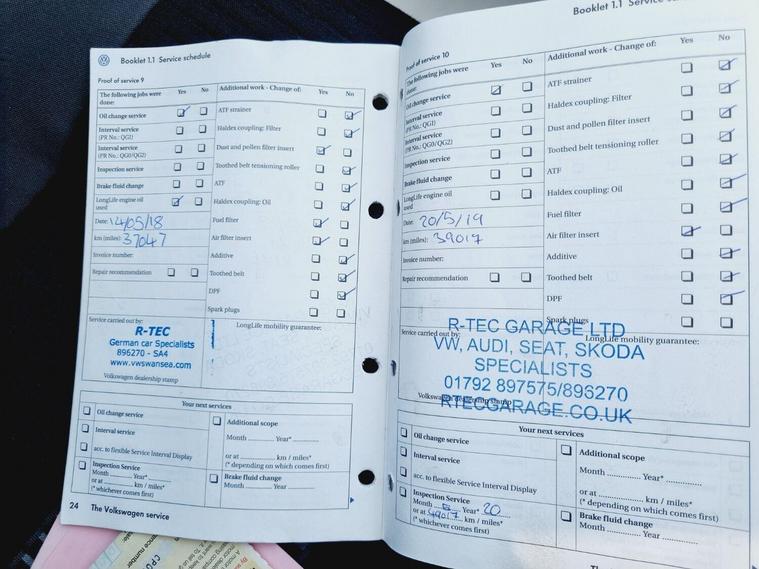 Booklet 1.1 Service schedule
Proof of service 9
The following jobs were done:
Yes No
Additional work - Change of:
Yes No
Oil change service
Interval service
(PR No.: QG1)
Interval service
(PR No.: QG0/QG2)
Inspection service
Brake fluid change
LongLife engine oil
used
Date: 14/05/18
km (miles): 37047
Invoice number:
Repair recommendation
ATF strainer
Haldex coupling: Filter
Dust and pollen filter insert
Toothed belt tensioning roller
ATF
Haldex coupling: Oil
Fuel filter
Air filter insert
Additive
Toothed belt
DPF
Spark plugs
Service carried out by:
R-TEC
German car Specialists
896270 - SA4
www.vwswansea.com
Volkswagen dealership stamp
LongLife mobility guarantee:
Your next services
Oil change service
Interval service
acc. to flexible Service Interval Display
Inspection Service
Month ........ Year* ........
or at ........ km / miles*
(* whichever comes first)
Additional scope
Month ........ Year* ........
or at ........ km / miles*
(* depending on which comes first)
Brake fluid change
Month ........ Year ........
24 The Volkswagen service
Booklet 1.1 Service
Proof of service 10
The following jobs were
done:
Yes No
Additional work - Change of:
Yes No
Oil change service
Interval service
(PR No.: QG1)
Interval service
(PR No.: QG0/QG2)
Inspection service
Brake fluid change
LongLife engine oil
used
Date: 20/5/19
km (miles): 39017
Invoice number:
Repair recommendation
ATF strainer
Haldex coupling: Filter
Dust and pollen filter insert
Toothed belt tensioning roller
ATF
Haldex coupling: Oil
Fuel filter
Air filter insert
Additive
Toothed belt
DPF
Spark plugs
Service carried out by:
LongLife mobility guarantee:
R-TEC GARAGE LTD
VW, AUDI, SEAT, SKODA
SPECIALISTS
01792 897575/896270
RTECGARAGE.CO.UK
Volkswagen dealership stamp
Your next services
Oil change service
Interval service
acc. to flexible Service Interval Display
Inspection Service
Month 5 Year* 20
or at 49017 km / miles*
(* whichever comes first)
Additional scope
Month ........ Year* ........
or at ........ km / miles*
(* depending on which comes first)
Brake fluid change
Month ........ Year ........